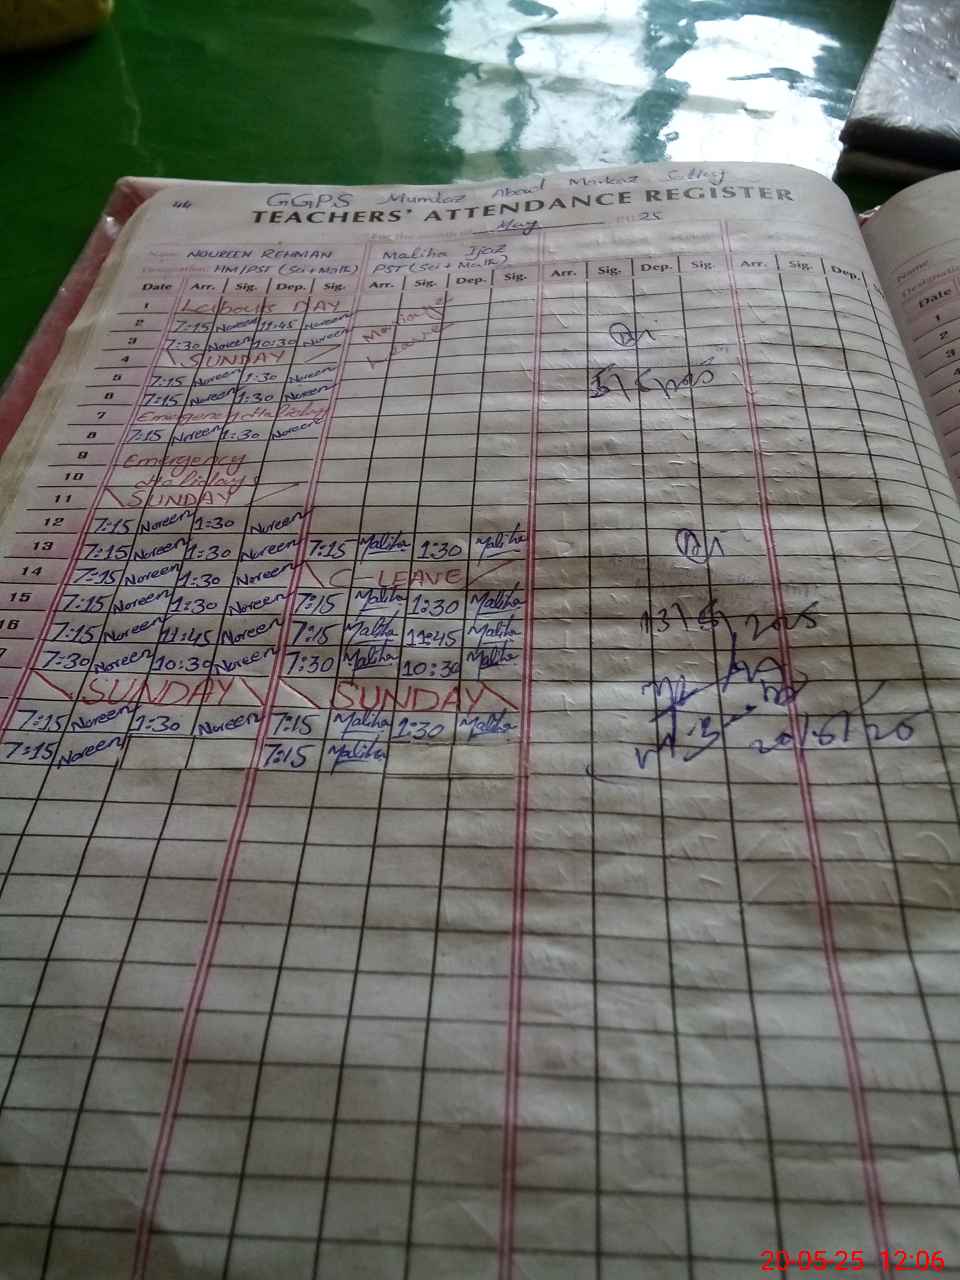 44 GGPS Mumtaz Abad Markaz
TEACHERS' ATTENDANCE REGISTER
For the month of May 25
Name NOUREEN REHMAN Maliha Ijaz
Designation HM/PST (Sci+Math) PST (Sci + Math)
Date Arr. Sig. Dep. Sig. Arr. Sig. Dep. Sig. Arr. Sig. Dep. Sig. Arr. Sig. Dep.
1 Labour's DAY
2 7:15 Noreen 11:45 Noreen
3 7:30 Noreen 10:30 Noreen
4 SUNDAY
5 7:15 Noreen 1:30 Noreen
6 7:15 Noreen 1:30 Noreen
7 Emergency Holiday
8 7:15 Noreen 1:30 Noreen
9 Emergency
10 Holiday
11 SUNDAY
12 7:15 Noreen 1:30 Noreen
13 7:15 Noreen 1:30 Noreen 7:15 Maliha 1:30 Maliha
14 7:15 Noreen 1:30 Noreen C-LEAVE
15 7:15 Noreen 1:30 Noreen 7:15 Maliha 1:30 Maliha
16 7:15 Noreen 11:45 Noreen 7:15 Maliha 11:45 Maliha
7:30 Noreen 10:30 Noreen 7:30 Maliha 10:30 Maliha
SUNDAY SUNDAY
7:15 Noreen 1:30 Noreen 7:15 Maliha 1:30 Maliha
7:15 Noreen 7:15 Maliha
13/5/2025
20/5/25
Name
Designation
Date
1
2
3
4
20-05-25 12:06